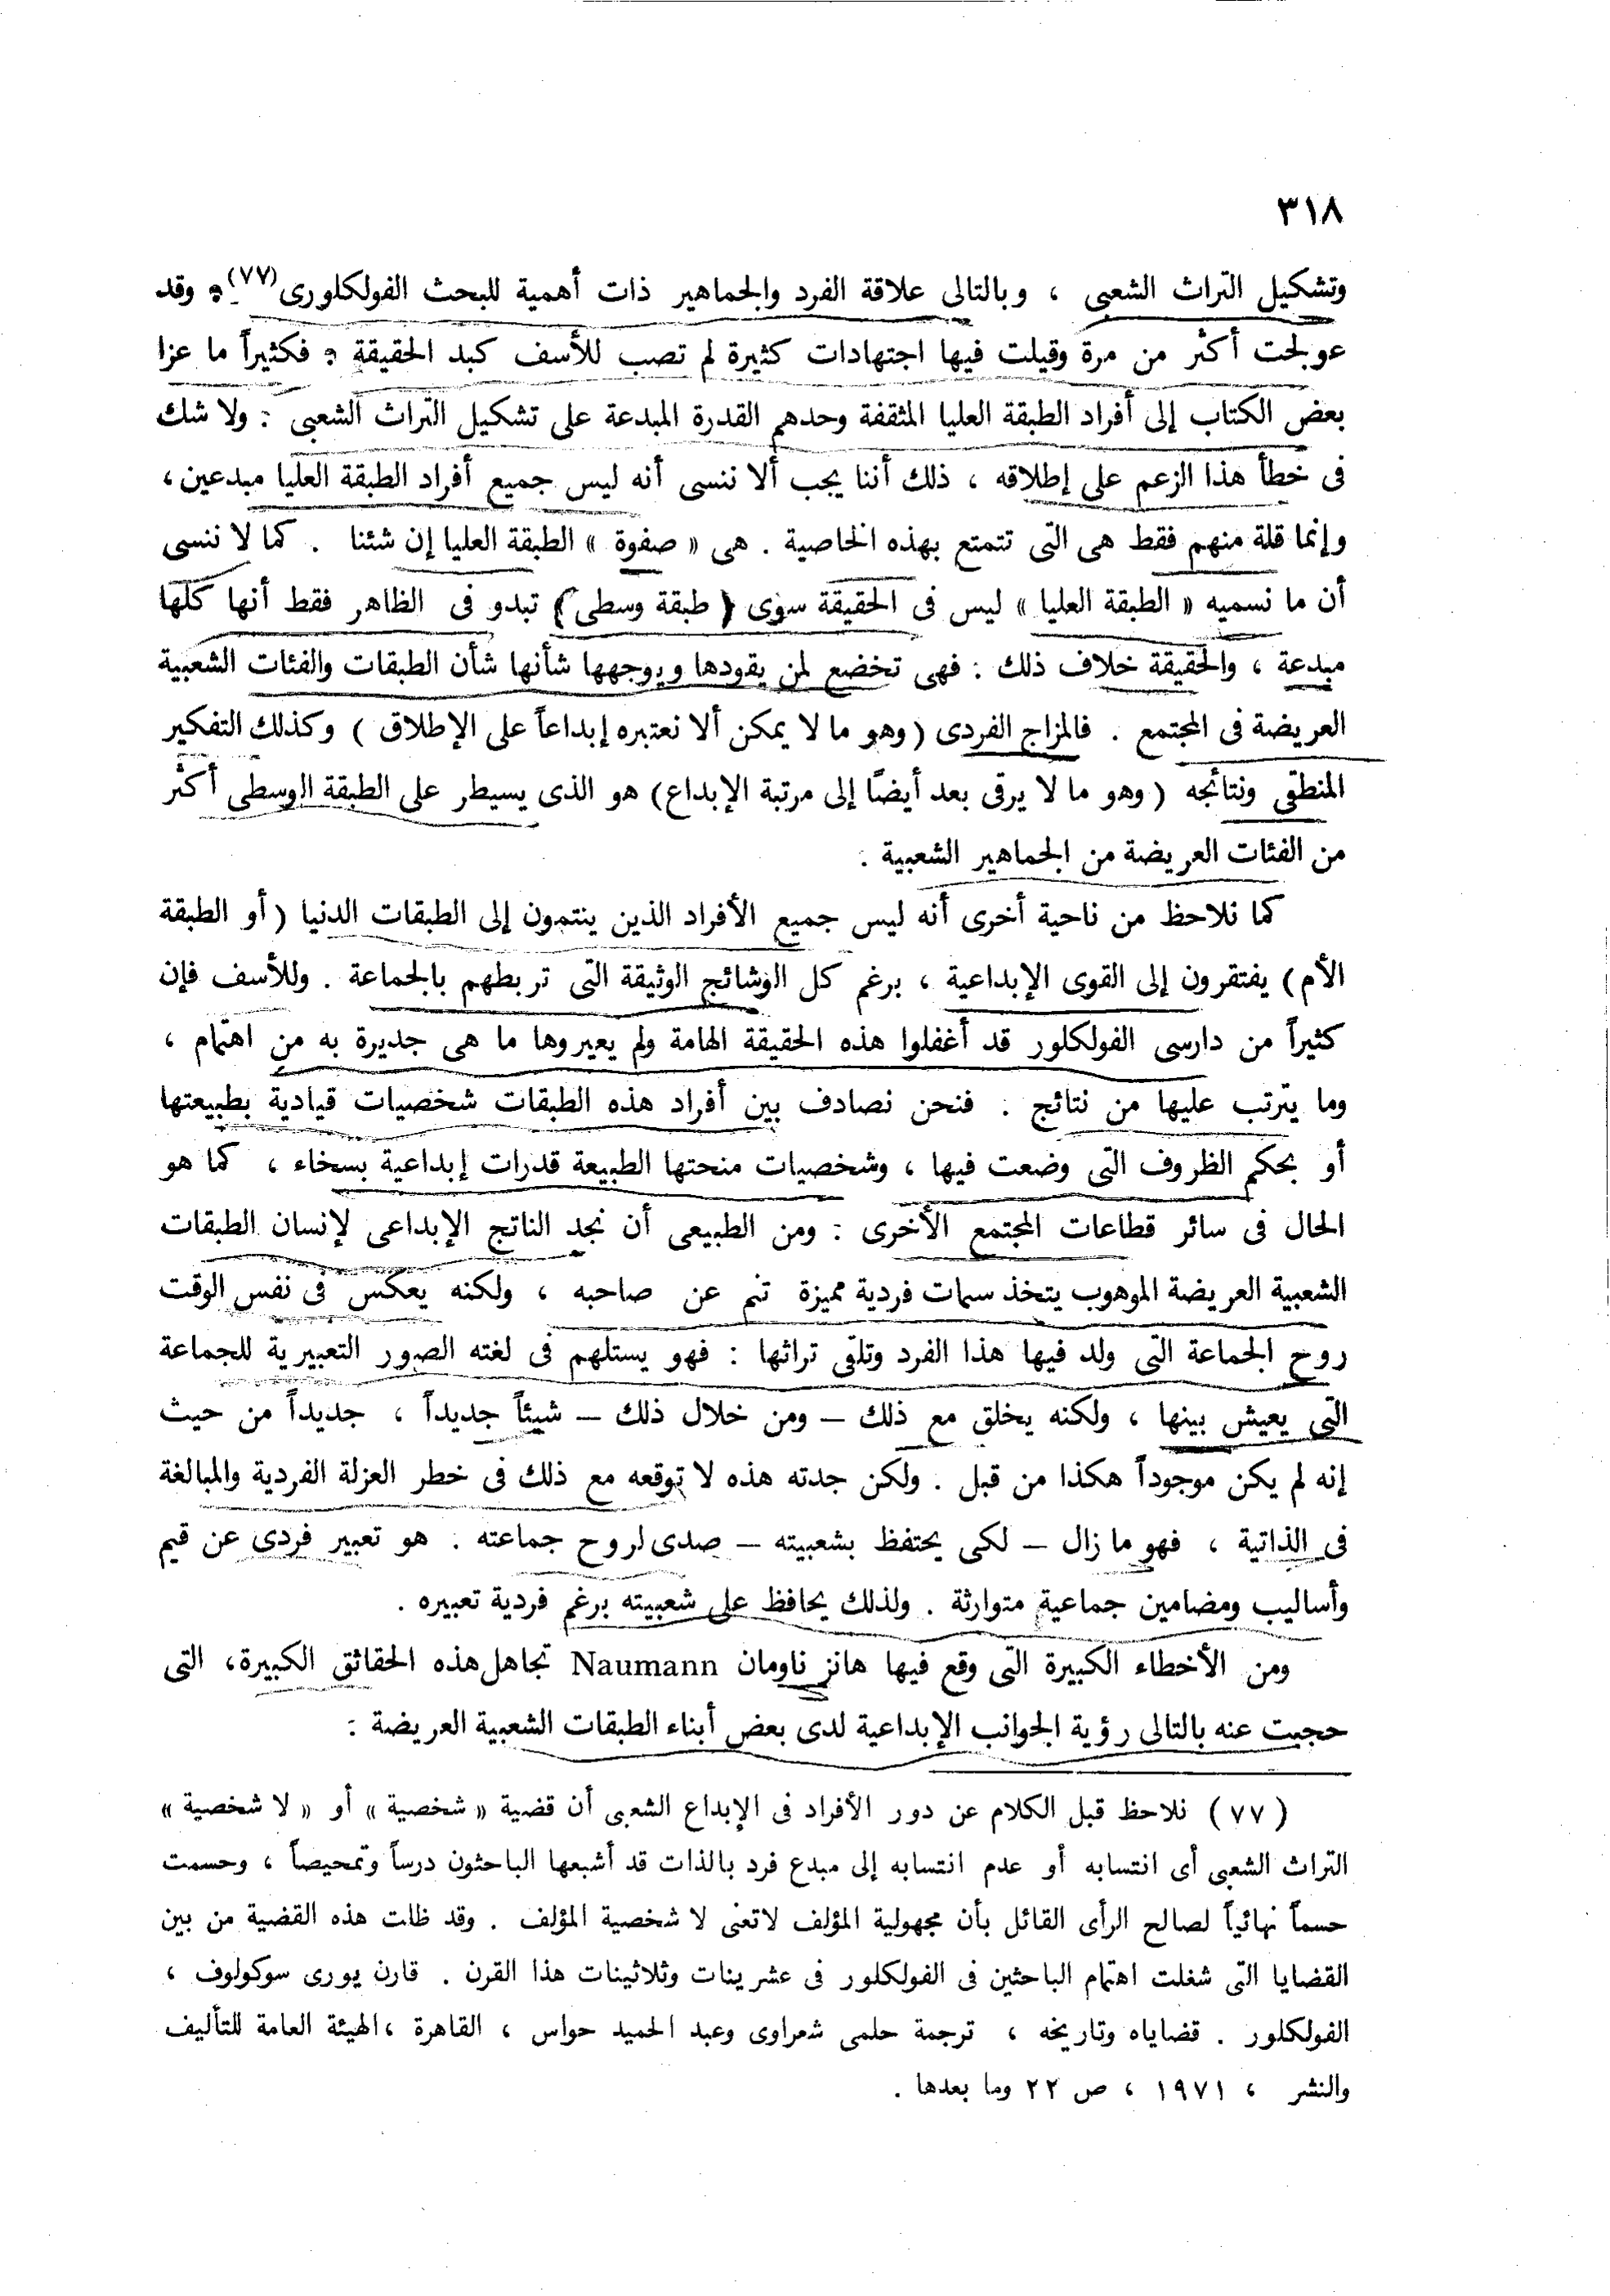 ٣١٨
وتشكيل التراث الشعبى ، وبالتالى علاقة الفرد والجماهير ذات أهمية للبحث الفولكلورى(٧٧). وقد
عولجت أكثر من مرة وقيلت فيها اجتهادات كثيرة لم تصب للأسف كبد الحقيقة . فكثيراً ما عزا
بعض الكتاب إلى أفراد الطبقة العليا المثقفة وحدهم القدرة المبدعة على تشكيل التراث الشعبى . ولا شك
فى خطأ هذا الزعم على إطلاقه ، ذلك أننا يجب ألا ننسى أنه ليس جميع أفراد الطبقة العليا مبدعين ،
وإنما قلة منهم فقط هى التى تتمتع بهذه الخاصية . هى « صفوة » الطبقة العليا إن شئنا . كما لا ننسى
أن ما نسميه « الطبقة العليا » ليس فى الحقيقة سوى ( طبقة وسطى ) تبدو فى الظاهر فقط أنها كلها
مبدعة ، والحقيقة خلاف ذلك : فهى تخضع لمن يقودها ويوجهها شأنها شأن الطبقات والفئات الشعبية
العريضة فى المجتمع . فالمزاج الفردى ( وهو ما لا يمكن ألا نعتبره إبداعاً على الإطلاق ) وكذلك التفكير
المنطقى ونتائجه ( وهو ما لا يرقى بعد أيضًا إلى مرتبة الإبداع ) هو الذى يسيطر على الطبقة الوسطى أكثر
من الفئات العريضة من الجماهير الشعبية .
كما نلاحظ من ناحية أخرى أنه ليس جميع الأفراد الذين ينتمون إلى الطبقات الدنيا ( أو الطبقة
الأم ) يفتقرون إلى القوى الإبداعية ، برغم كل الوشائج الوثيقة التى تربطهم بالجماعة . وللأسف فإن
كثيراً من دارسى الفولكلور قد أغفلوا هذه الحقيقة الهامة ولم يعيروها ما هى جديرة به من اهتمام ،
وما يترتب عليها من نتائج . فنحن نصادف بين أفراد هذه الطبقات شخصيات قيادية بطبيعتها
أو بحكم الظروف التى وضعت فيها ، وشخصيات منحتها الطبيعة قدرات إبداعية بسخاء ، كما هو
الحال فى سائر قطاعات المجتمع الأخرى : ومن الطبيعى أن نجد الناتج الإبداعى لإنسان الطبقات
الشعبية العريضة الموهوب يتخذ سمات فردية مميزة تنم عن صاحبه ، ولكنه يعكس فى نفس الوقت
روح الجماعة التى ولد فيها هذا الفرد وتلقى تراثها : فهو يستلهم فى لغته الصور التعبيرية للجماعة
التى يعيش بينها ، ولكنه يخلق مع ذلك – ومن خلال ذلك – شيئاً جديداً ، جديداً من حيث
إنه لم يكن موجوداً هكذا من قبل . ولكن جدته هذه لا توقعه مع ذلك فى خطر العزلة الفردية والمبالغة
فى الذاتية ، فهو ما زال – لكى يحتفظ بشعبيته – صدى لروح جماعته . هو تعبير فردى عن قيم
وأساليب ومضامين جماعية متوارثة . ولذلك يحافظ على شعبيته برغم فردية تعبيره .
ومن الأخطاء الكبيرة التى وقع فيها هانز ناومان Naumann تجاهل هذه الحقائق الكبيرة ، التى
حجبت عنه بالتالى رؤية الجوانب الإبداعية لدى بعض أبناء الطبقات الشعبية العريضة :
( ٧٧ ) نلاحظ قبل الكلام عن دور الأفراد فى الإبداع الشعبى أن قضية « شخصية » أو « لا شخصية »
التراث الشعبى أى انتسابه أو عدم انتسابه إلى مبدع فرد بالذات قد أشبعها الباحثون درساً وتمحيصاً ، وحسمت
حسماً نهائياً لصالح الرأى القائل بأن مجهولية المؤلف لا تعنى لا شخصية المؤلف . وقد ظلت هذه القضية من بين
القضايا التى شغلت اهتمام الباحثين فى الفولكلور فى عشرينات وثلاثينات هذا القرن . قارن يورى سوكولوف ،
الفولكلور . قضاياه وتاريخه ، ترجمة حلمى شعراوى وعبد الحميد حواس ، القاهرة ، الهيئة العامة للتأليف
والنشر ، ١٩٧١ ، ص ٢٢ وما بعدها .